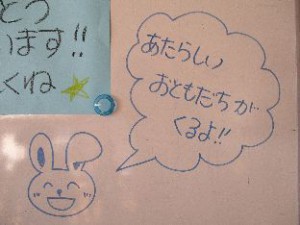 とう
います!!
くね
あたらしい
おともだちが
くるよ!!